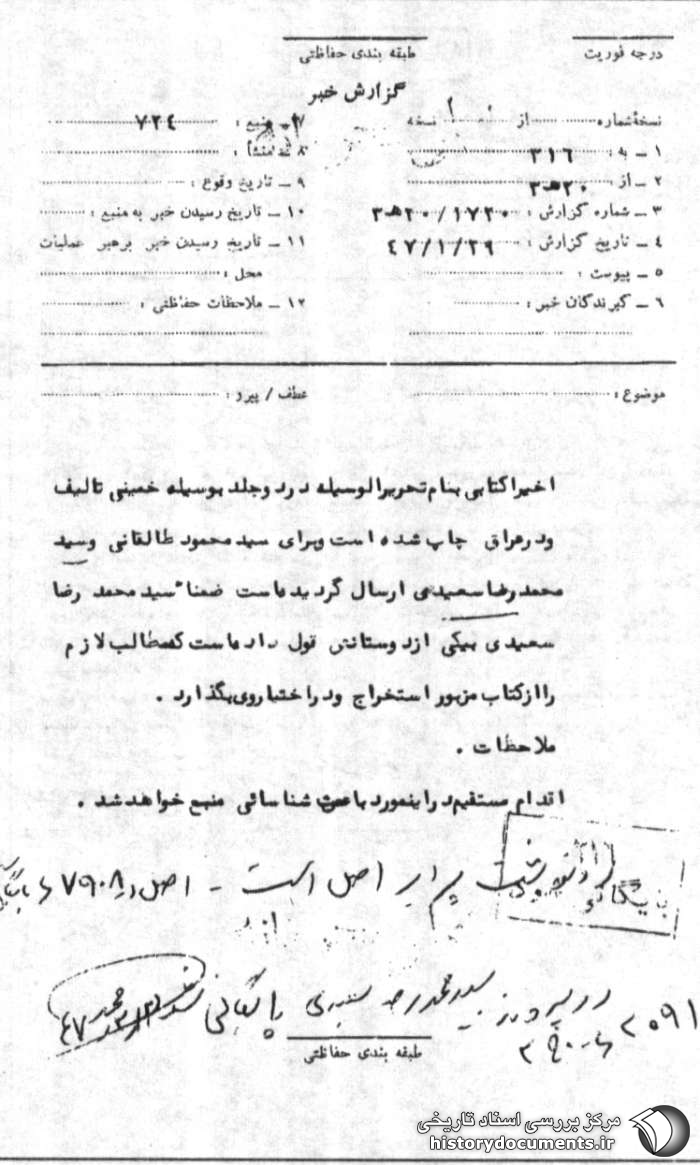 درجه فوریت
طبقه بندی حفاظتی
گزارش خبر
نسخهٔ شماره از نسخه
۱ ـ به : ۳۱۶
۲ ـ از : ۲۰هـ۳
۳ ـ شماره گزارش : ۲۰/۱۷۲۰هـ۳
۴ ـ تاریخ گزارش : ۴۷/۱/۲۹
۵ ـ پیوست :
۶ ـ گیرندگان خبر :
۷ ـ منبع : ۷۲۴
۸ ـ منشأ :
۹ ـ تاریخ وقوع :
۱۰ ـ تاریخ رسیدن خبر به منبع :
۱۱ ـ تاریخ رسیدن خبر برهبر عملیات
محل :
۱۲ ـ ملاحظات حفاظتی :
موضوع :
عطف / پیرو :
اخیرا کتابی بنام تحریرالوسیله در دوجلد بوسیله خمینی تالیف
ودرعراق چاپ شده است وبرای سید محمود طالقانی وسید
محمدرضا سعیدی ارسال گردیده است ضمنا" سید محمد رضا
سعیدی بیکی ازدوستانش قول داده است که مطالب لازم
راازکتاب مزبور استخراج ودراختیاروی بگذارد .
ملاحظات .
اقدام مستقیم دراینمورد باعث شناسائی منبع خواهد شد .
برابر اصل است - اصل در ۷۹۰۸
در پرونده سید محمد رضا سعیدی بایگانی
۲۰۹۱
طبقه بندی حفاظتی
مرکز بررسی اسناد تاریخی
historydocuments.ir